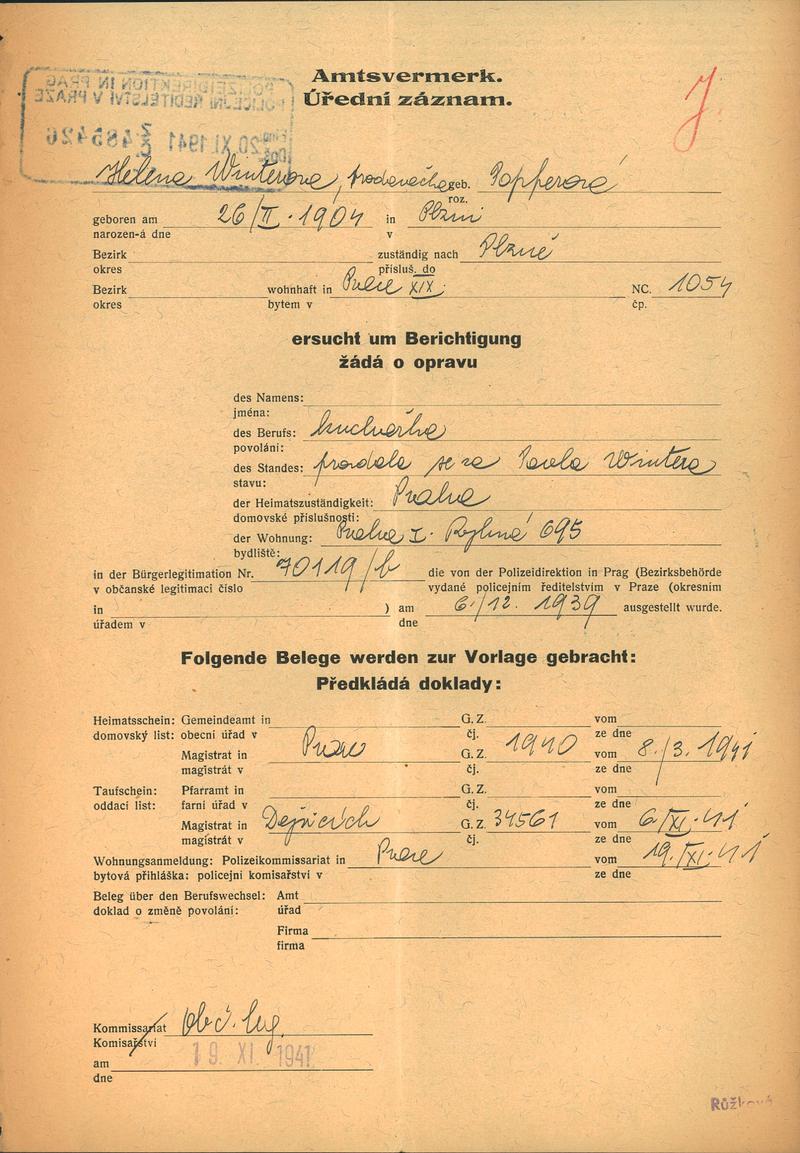 POLIZEIDIREKTION IN PRAG
POLICEJNÍ ŘEDITELSTVÍ V PRAZE
20 XI 1941 485426
Amtsvermerk.
Úřední záznam.
J
Helena Winterova, prodavačka geb. Popperová
roz.
geboren am 26/II. 1904 in Plzni
narozen-á dne v
Bezirk zuständig nach Plzně
okres přísluš. do
Bezirk wohnhaft in Praze XIX NC. 1054
okres bytem v čp.
ersucht um Berichtigung
žádá o opravu
des Namens:
jména:
des Berufs: kuchařka
povolání:
des Standes: provdala se za Pavla Wintera
stavu:
der Heimatszuständigkeit: Praha
domovské příslušnosti:
der Wohnung: Praha I. 695
bydliště:
in der Bürgerlegitimation Nr. 70119/b die von der Polizeidirektion in Prag (Bezirksbehörde
v občanské legitimaci číslo vydané policejním ředitelstvím v Praze (okresním
in ) am 6./12. 1939 ausgestellt wurde.
úřadem v dne
Folgende Belege werden zur Vorlage gebracht:
Předkládá doklady:
Heimatsschein: Gemeindeamt in G. Z. vom
domovský list: obecní úřad v čj. ze dne
Magistrat in Praze G. Z. 1940 vom 8./3. 1941
magistrát v čj. ze dne
Taufschein: Pfarramt in G. Z. vom
oddací list: farní úřad v čj. ze dne
Magistrat in Dejvicích G. Z. 34561 vom 6/XI. 41
magistrát v čj. ze dne
Wohnungsanmeldung: Polizeikommissariat in Praze vom 19./XI. 41
bytová přihláška: policejní komisařství v ze dne
Beleg über den Berufswechsel: Amt
doklad o změně povolání: úřad
Firma
firma
Kommissariat Obč. leg.
Komisařství
am 19. XI. 1941
dne
Růžková